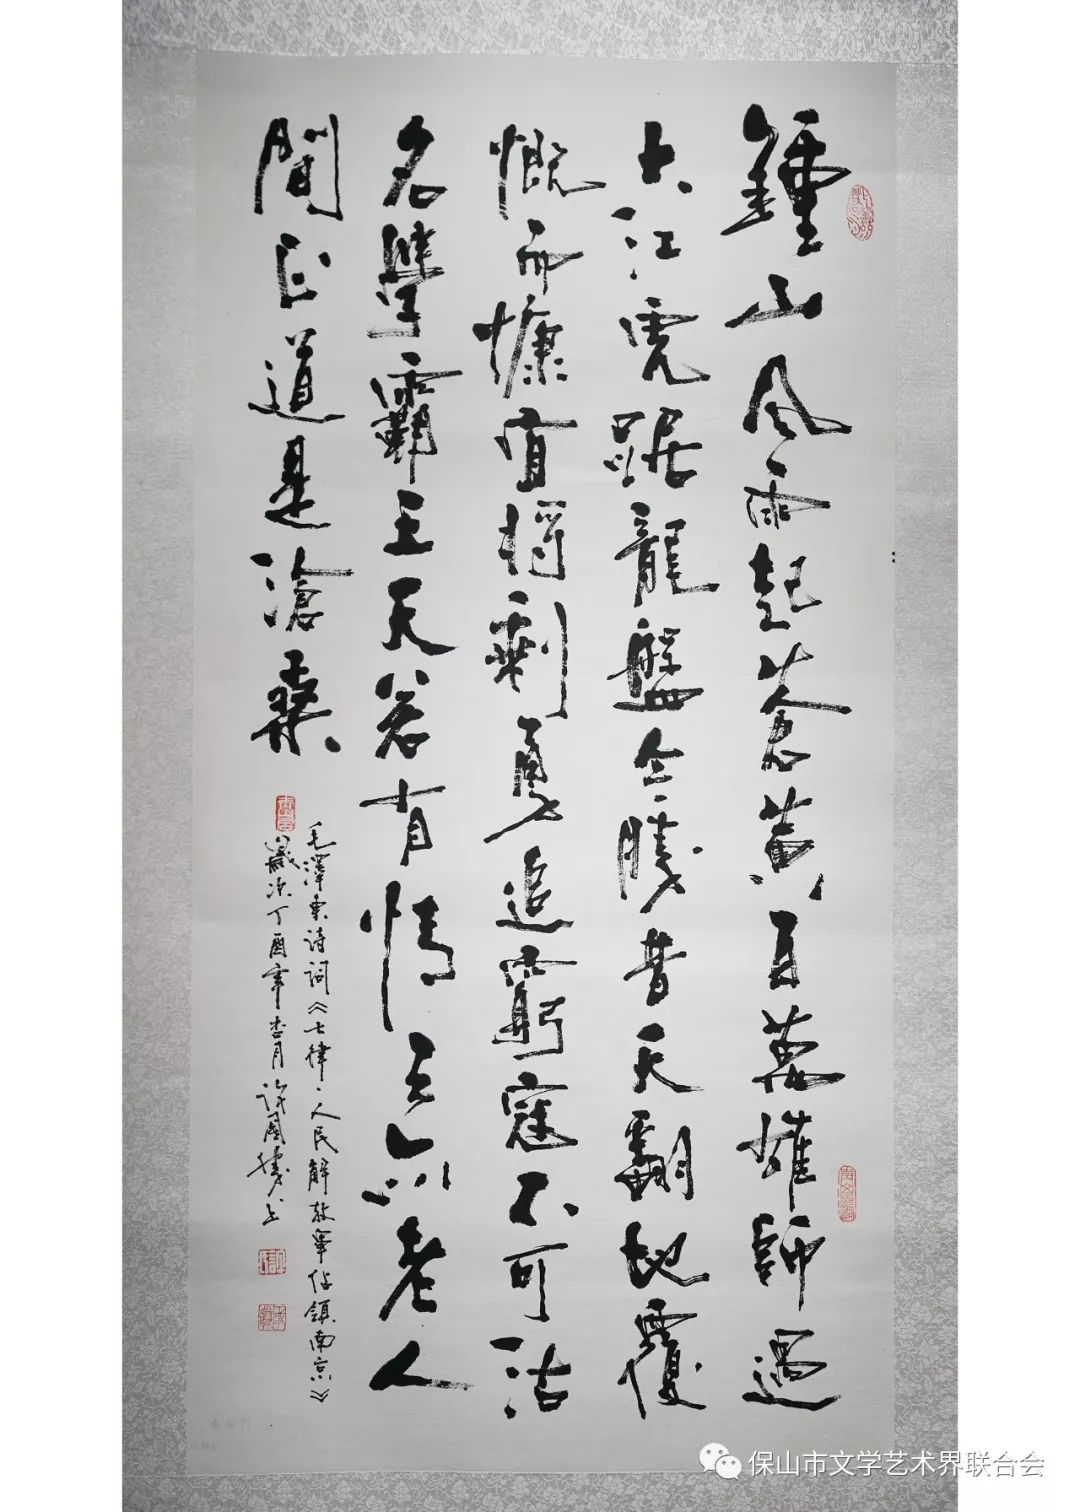 鍾山風雨起蒼黃百萬雄師過
大江虎踞龍盤今勝昔天翻地覆
慨而慷宜將剩勇追窮寇不可沽
名學霸王天若有情天亦老人
間正道是滄桑
毛澤東诗词《七律、人民解放軍佔領南京》
歲次丁酉年杏月許國勝书
保山市文学艺术界联合会